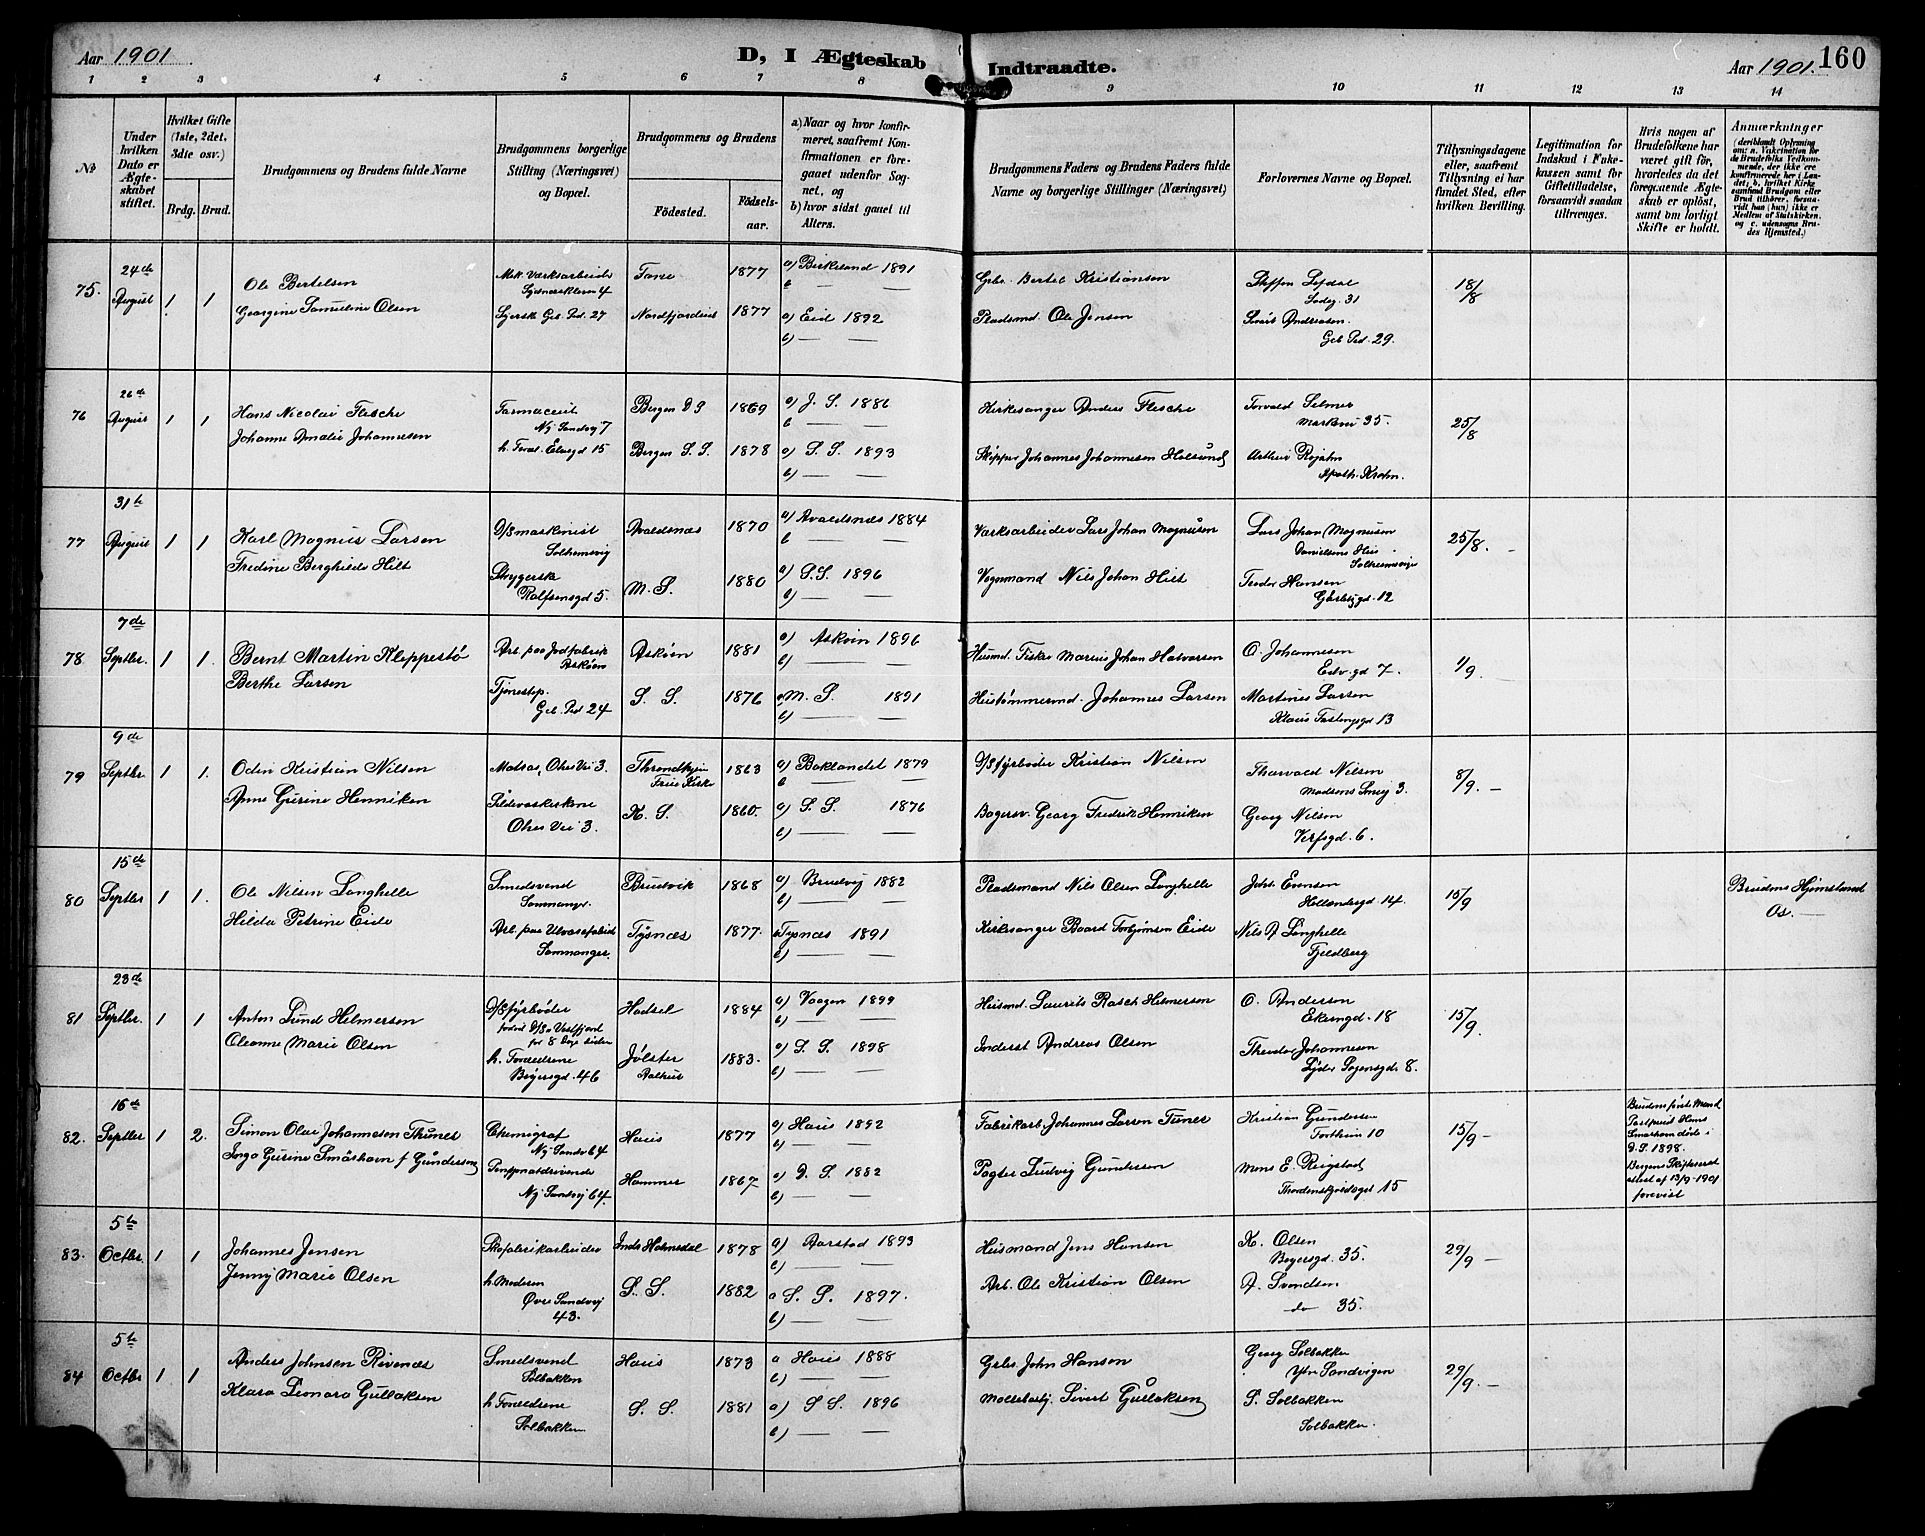 Aar 1901
D, I Ægteskab Indtraadte.
Aar 1901. 160
1 2 3 4 5 6 7 8 9 10 11 12 13 14
No
Under hvilken Dato er Ægteskabet stiftet.
Hvilket Gifte (1ste, 2det, 3die osv.)
Brdg. Brud.
Brudgommens og Brudens fulde Navne
Brudgommens borgerlige Stilling (Næringsvei) og Bopæl.
Brudgommens og Brudens
Födested.
Födselsaar.
a) Naar og hvor konfirmeret, saafremt Konfirmationen er foregaaet udenfor Sognet, og
b) hvor sidst gaaet til Alters.
Brudgommens Faders og Brudens Faders fulde Navne og borgerlige Stillinger (Næringsvei)
Forlovernes Navne og Bopæl.
Tillysningsdagene eller, saafremt Tillysning ei har fundet Sted, efter hvilken Bevilling.
Legitimation for Indskud i Enkekassen samt for Giftetilladelse, forsaavidt saadan tiltrænges.
Hvis nogen af Brudefolkene har været gift för, hvorledes da det foregaaende Ægteskab er oplöst, samt om lovligt Skifte er holdt.
Anmærkninger
75. 24de August 1 1
Ole Bertelsen
Georgine Samueline Olsen
Mek. Værksarbeider
Syerske 27
Nordfjordeid
1877 a) Birkeland 1891
b) — —
1877 a) Eid 1892
b) — —
Gbr. Bertel Kristiansen
Pladsmd. Ole Jensen
Steffen
31
Andreasen
29.
18/8
76 26de August 1 1
Hans Nicolai Flesche
Johanne Amalie Johannesen
Farmaceut
Ny Sandvg 7
15
Bergen D S 1869 a) J. S. 1886
b — —
Bergen S. S. 1878 a) S. S. 1893
b) — —
Kirkesanger Anders Flesche
Skipper Johannes Johannesen
Torvald Selmer
Markevei 35.
Apoth. Krohn.
25/8
77 31te August 1 1
Karl Magnus Larsen
Fredine Berghilde Hilt
D/Smaskinist
Solhemsvig
Strygerske
Rolfsensgd 5.
Avaldsnæs 1870 a) Avaldsnæs 1884
b — —
M. S. 1880 a) S. S. 1896
b) — —
Værksarbeider Lars Johan Magnusen
Vognmand Nils Johan Hilt
Lars Johan Magnusen
Danielsens Hus
Solheimsvig
Teodor Hansen
12
25/8. —
78. 7de Septbr. 1 1.
Bernt Martin Kleppestö
Berthe Larsen
Arb. paa Jodfabrik
Askøen
Tjenestep.
24
Askøen 1881 a) Askøen 1896
b) — —
S. S. 1876 a) M. S. 1891
b) — —
Husmd. Fisker Marius Johan Halvorsen
Hustømmermd. Johannes Larsen
O. Johannesen
7
Martines Larsen
Klaus 13
1/9.
79 9de Septbr. 1 1.
Odin Kristian Nilsen
Anne Gurine Henriken
Matros, Vei 3.
Vei 3.
Throndhjem
Frue Kirke
1863 a) Baklandet 1879
b — —
K. S. 1860. a) S. S. 1876
b) — —
D/Sfyrbøder Kristian Nilsen
Bagersv. Georg Fredrik Henriken
Thorvald Nilsen
Madsens Smeg 3.
Georg Nilsen
Verfsgd. 6.
8/9. —
80 15de Septbr 1 1.
Ole Nilsen Langhelle
Hilda Petrine Eide
Smedsvend
Sammangr.
Arb. paa Uldvarefabrik
Sammanger.
Brudvik 1868 a) Brudvig 1882
b) — —
Tysnæs 1877. a) Tysnæs 1891
b) — —
Pladsmand Nils Olsen Langhelle
Kirkesanger Baard Torbjørnsen Eide
Johs. Evensen
14
Nils A Langhelle
Fjeldberg
15/9
Brudens Hjemsted
Os. —
81 23de Septbr. 1 1
Anton Lund Helmersen
Oleanne Marie Olsen
D/Sfyrbøder
D/S Vestfjord
for 8 Dage siden
h. Forældrene
Bøgersgd. 46
Hadsel 1884 a) Vaagan 1899
b) — —
Jølster
Aalhus
1883. a) S. S. 1898
b) — —
Husmd. Laurits Rasch Helmersen
Inderst Andreas Olsen
O. Andersen
18
Theodor Johannesen
8.
15/9.
82. 16de Septbr 1 2.
Simon Olai Johannesen Thunes
Inga Gurine Smäshavn f Gundersen
Chemigraf
Ny Sandv 64
Pensjonatdrivende
Ny Sandvg 64.
Haus 1877 a) Haus 1892
b) — —
Hammer 1867 a) D. S. 1882
b) — —
Fabrikarb. Johannes Larsen Tunes
Ludvig Gundersen
Kristian Gundersen
10
Mons E. Rigstad
15
15/9 —
Brudens første Mand
døde i
D. S. 1898.
Bergens Skifteret
attest af 13/9-1901
forevist
83. 5te Octbr. 1 1
Johannes Jensen
Jenny Marie Olsen
Skofabrikarbeider
h Moderen
Øvre Sandvig
43.
Indre Holmedal 1878 a) Aarstad 1893
b) — —
S. S. 1882 a S. S. 1897.
b) — —
Husmand Jens Hansen
Arb. Ole Kristian Olsen
K. Olsen
Bøgersgd. 35.
A. Svendsen
do 35.
29/9 —
84 5te Octbr 1 1
Anders Johnsen Rivenæs
Klara Leonara Gullaksen
Smedsvend
Solbakken
h Forældrene
Solbakken
Haus 1873 a Haus 1888
b) — —
S. S. 1881 a) S S. 1896
b) — —
Grbr. John Hansen
Sivert Gullaksen
Georg Solbakken
Ytre Sandvigen
S. Solbakken
Solbakken.
29/9. —